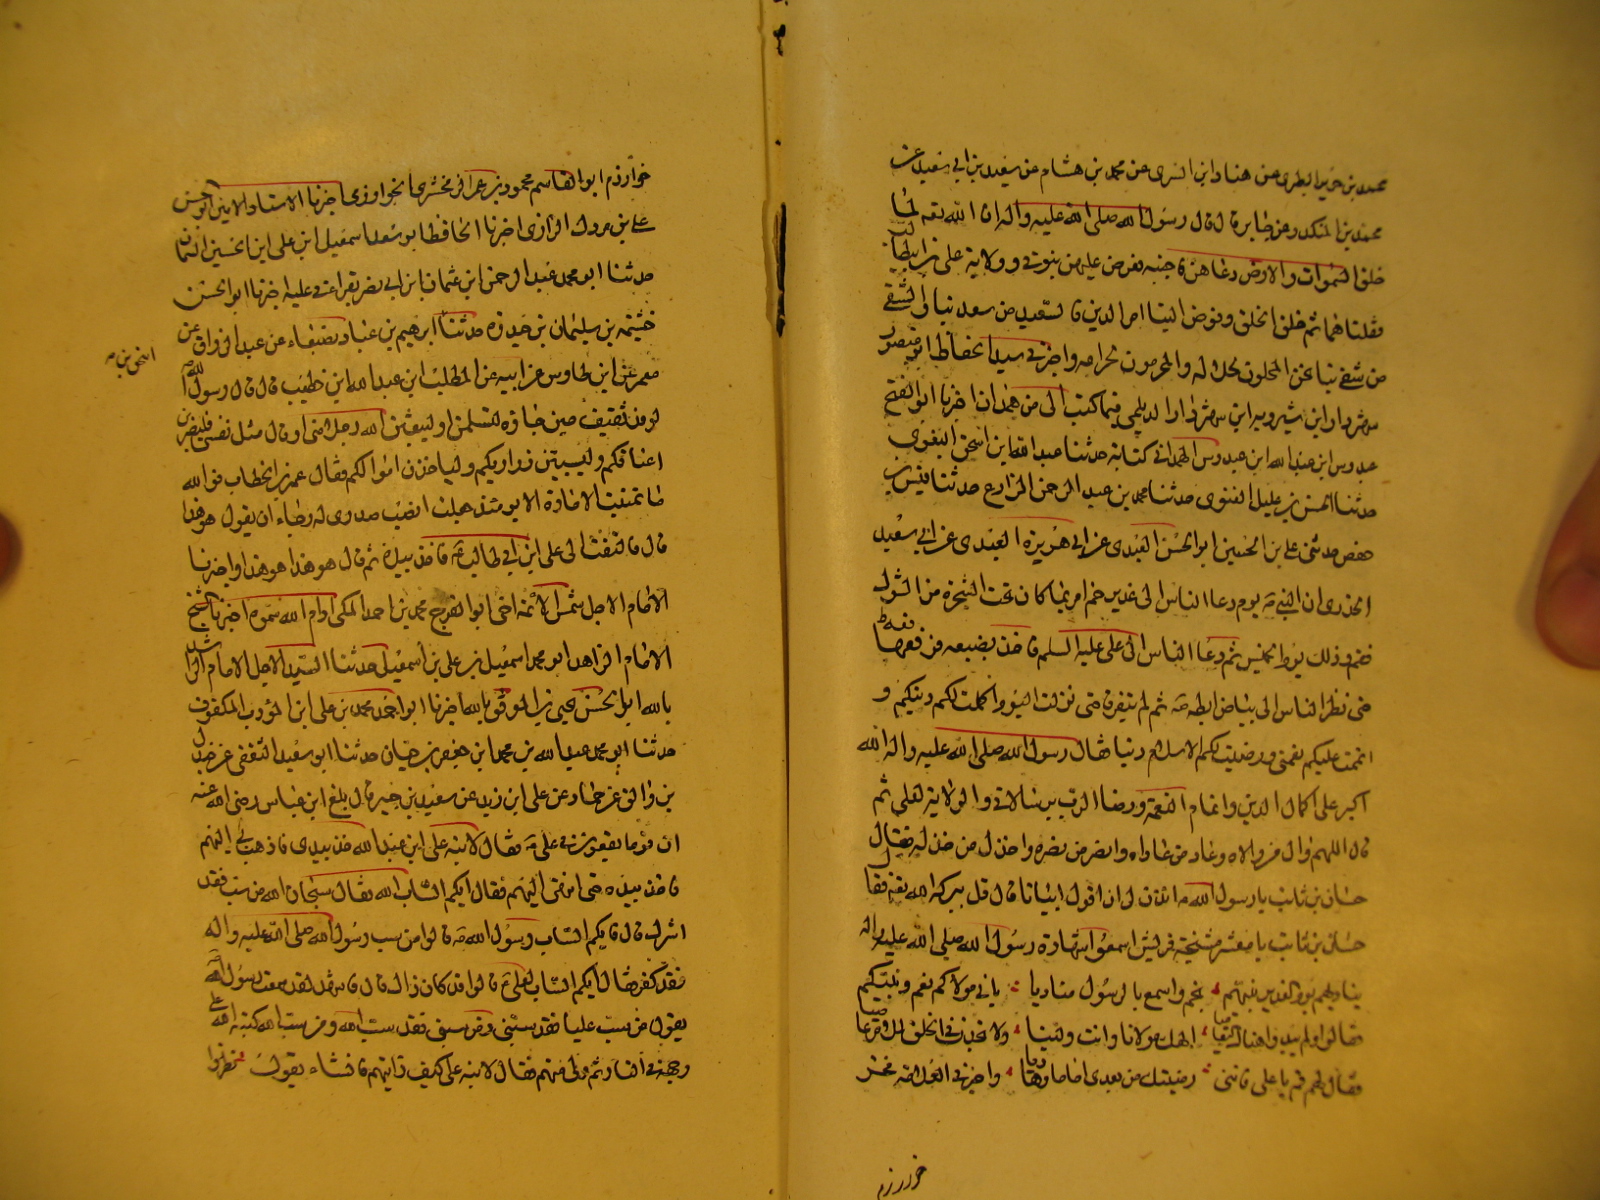 محمد بن جرير الطبرى عن هناد ابن السرى عن محمد بن هشام عن سعيد بن ابي سعيد عن
محمد بن المنكدر عن جابر قال قال رسول الله صلى الله عليه واله ان الله تعه لما
خلق السموات والارض دعاهن فاجبنه فعرض عليهن نبوتى وولاية على بن ابيطالب
فقبلتاهما ثم خلق الخلق وفوض الينا امر الدين فالسعيد من سعد بنا والشقى
من شقى بنا نحن المحلون لحلاله والمحرمون لحرامه واخبرنى سيد الحفاظ ابو منصور
شهردار ابن شيرويه ابن شهردار الديلمى فيما كتب الى من همدان اخبرنا ابو الفتح
عبدوس ابن عبد الله ابن عبدوس الهمدانى كتابة حدثنا عبد الله ابن اسحق البغوى
حدثنا الحسن بن عليل الغنوى حدثنا محمد بن عبد الرحمن الزارع حدثنا قيس بن
حفص حدثنى على بن الحسين ابو الحسن العبدى عن ابى هريرة العبدى عن ابى سعيد
الخدرى ان النبى يوم دعا الناس الى غدير خم امر بما كان تحت الشجرة من الشوك
فقم وذلك يوم الخميس ثم دعا الناس الى على عليه السلم فاخذ بضبعه فرفعها
حتى نظر الناس الى بياض ابطه ثم لم يتفرقا حتى نزلت اليوم اكملت لكم دينكم و
اتممت عليكم نعمتى ورضيت لكم الاسلام دينا فقال رسول الله صلى الله عليه واله الله
اكبر على اكمال الدين واتمام النعمة ورضا الرب برسالاتى والولاية لعلى ثم
قال اللهم وال من والاه وعاد من عاداه وانصر من نصره واخذل من خذله فقال
حسان بن ثابت يا رسول الله ائذن لى ان اقول ابياتا قال قل ببركة الله تعه فقال
حسان بن ثابت يا معشر مشيخة قريش اسمعوا شهادة رسول الله صلى الله عليه واله
يناديهم يوم الغدير نبيهم بخم واسمع بالرسول مناديا بانى مولاكم نعم ونبيكم
فقالوا ولم يبدوا هناك التعاميا الهك مولانا وانت ولينا ولا تجدن فى الخلق للامر عاصيا
فقال لهم قم يا على فاننى رضيتك من بعدى اماما وهاديا واخبرنى العلامة فخر
خوارزم
خوارزم ابو القاسم محمود بن عمر الزمخشرى الخوارزمى اخبرنا الاستاد الامين ابو الحسن
على بن مردك الرازى اخبرنا الحافظ ابو سعد اسمعيل ابن على ابن الحسين السمان
حدثنا ابو محمد عبد الرحمن ابن عثمان ابن ابى نصر بقراءتى عليه اخبرنا ابو الحسن
خيثمه بن سليمان بن حيدره حدثنا ابرهيم بن عباد بصنعاء عن عبد الرزاق عن
معمر عن ابن طاوس عن ابيه عن المطلب ابن عبد الله ابن حطيب قال قال رسول الله
لوفد ثقيف حين جاؤه لتسلمن او ليبعثن الله رجلا منى او قال مثل نفسى فليضربن
اعناقكم وليسبين ذراريكم ولياخذن اموالكم فقال عمر بن الخطاب فو الله
ما تمنيت الامارة الا يومئذ جعلت انصب صدرى له رجاء ان يقول هو هذا
قال فالتفت الى على ابن ابى طالب فاخذ بيده ثم قال هو هذا هو هذا واخبرنا
الامام الاجل شمس الائمة اخى ابو الفرج محمد بن احمد المكى ادام الله سموه اخبرنا الشيخ
الامام الزاهد ابو محمد اسمعيل بن على بن اسمعيل حدثنا السيد الاجل الامام المرشد
بالله ابو الحسن يحيى بن الموفق بالله اخبرنا ابو احمد محمد بن على ابن المؤدب المكفوف
حدثنا ابو محمد عبد الله بن محمد ابن جعفر بن حيان حدثنا ابو سعيد الثقفى عن جندل
بن والق عن حماد عن على ابن زيد عن سعيد بن جبير قال بلغ ابن عباس رضى الله عنه
ان قوما يقعون فى على فقال لابنه على ابن عبد الله خذ بيدى فاذهب بى اليهم
فاخذ بيده حتى انتهى اليهم فقال ايكم الساب الله فقال سبحان الله من سب فقد
اشرك قال فايكم الساب رسول الله قالوا من سب رسول الله صلى الله عليه واله
فقد كفر فقال ايكم الساب لعلى قالوا قد كان ذاك قال فاشهد لقد سمعت رسول الله
يقول من سب عليا فقد سبنى ومن سبنى فقد سب الله ومن سب الله كبه الله على
وجهه فى النار ثم ولى عنهم فقال لابنه على كيف رايتهم فانشاء يقول نظروا